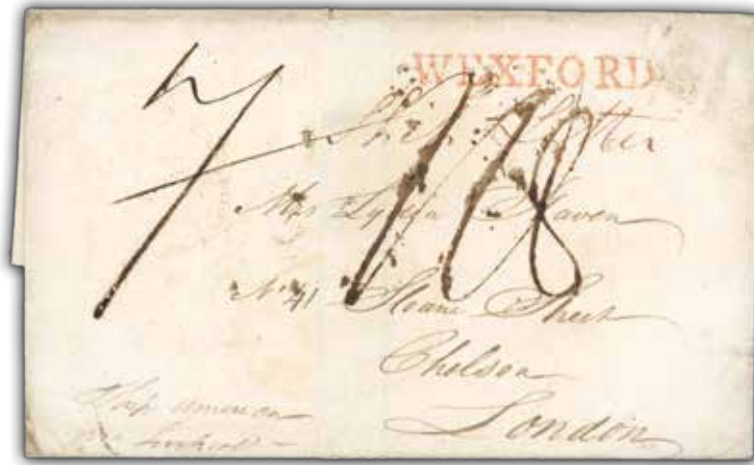 WEXFORD
7 Ship Letter
1/8
Mrs Lydia Haven
No 41 Sloane Street
Chelsea
London
Ship America